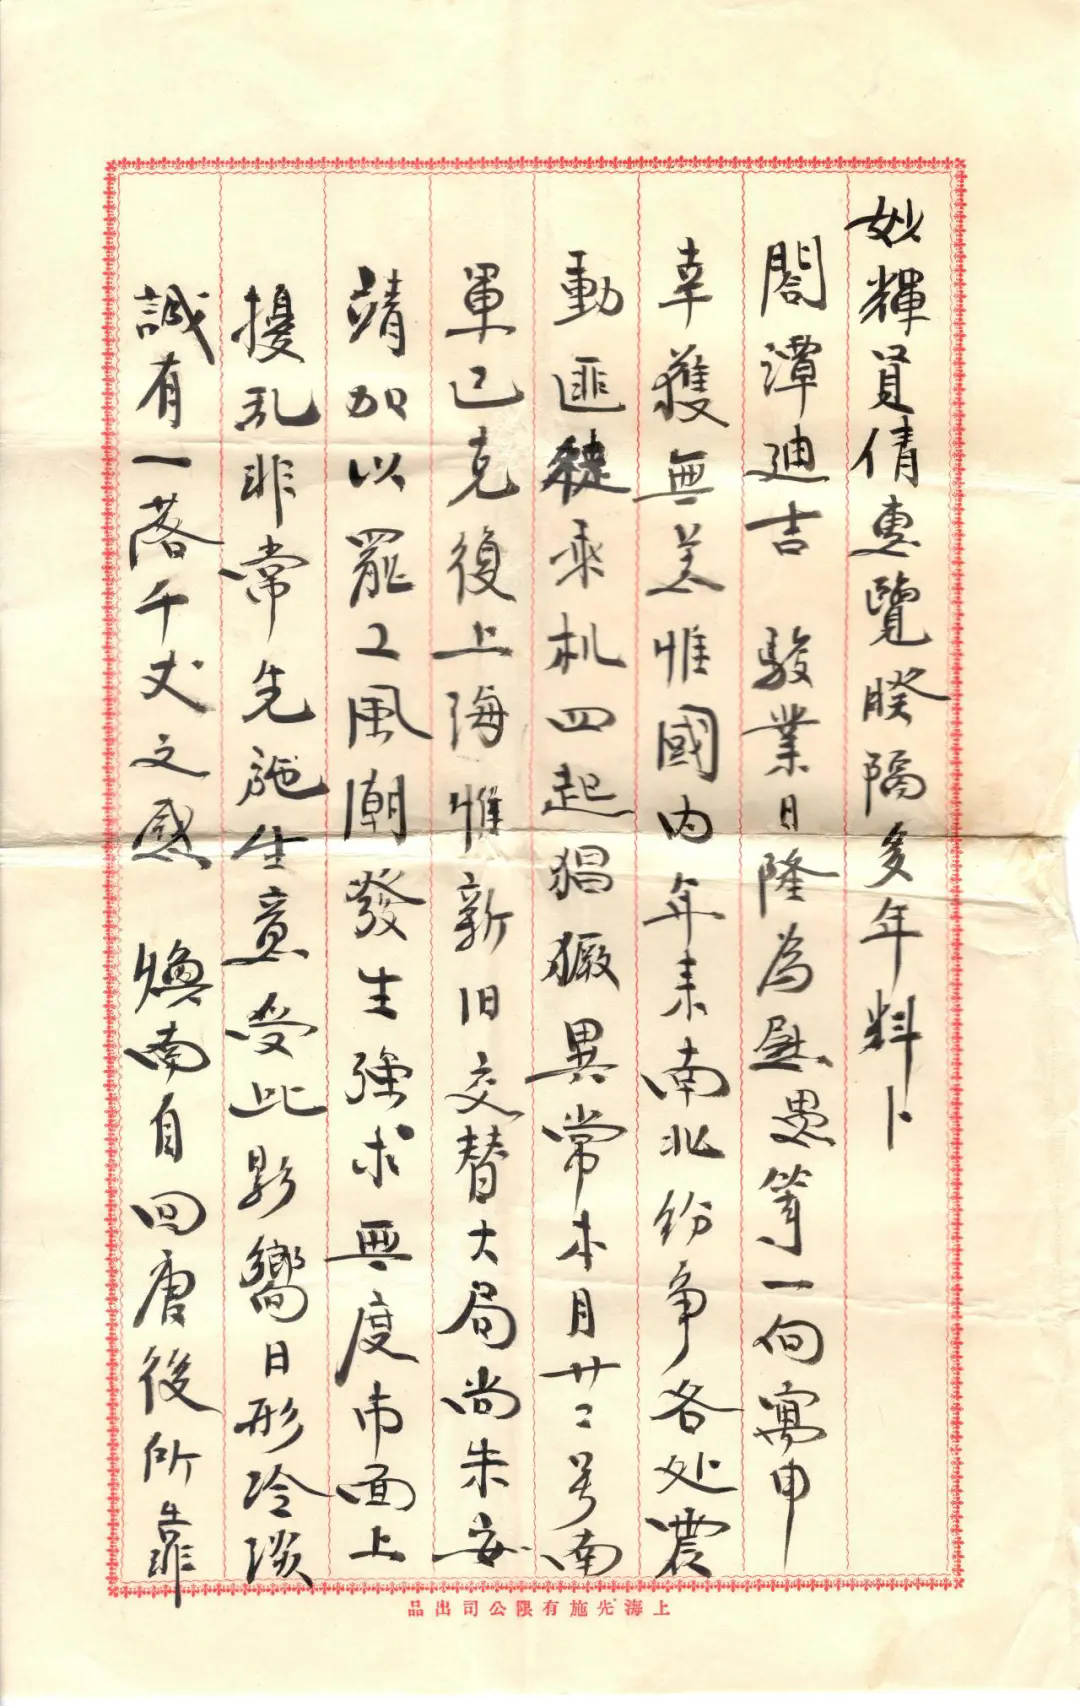 妙輝賢倩惠覽睽隔多年料卜
閤潭迪吉　駿業日隆為慰愚等一向寓申
幸獲無恙惟國内年来南北纷争各处震
動匪徒乘机四起猖獗異常本月廿二号南
軍已克復上海惟新旧交替大局尚未安
靖加以罷工風潮發生強求無度市面上
擾乱非常先施生意受此影嚮日形冷淡
誠有一落千丈之感　煥南自回唐後所靠
上海先施有限公司出品